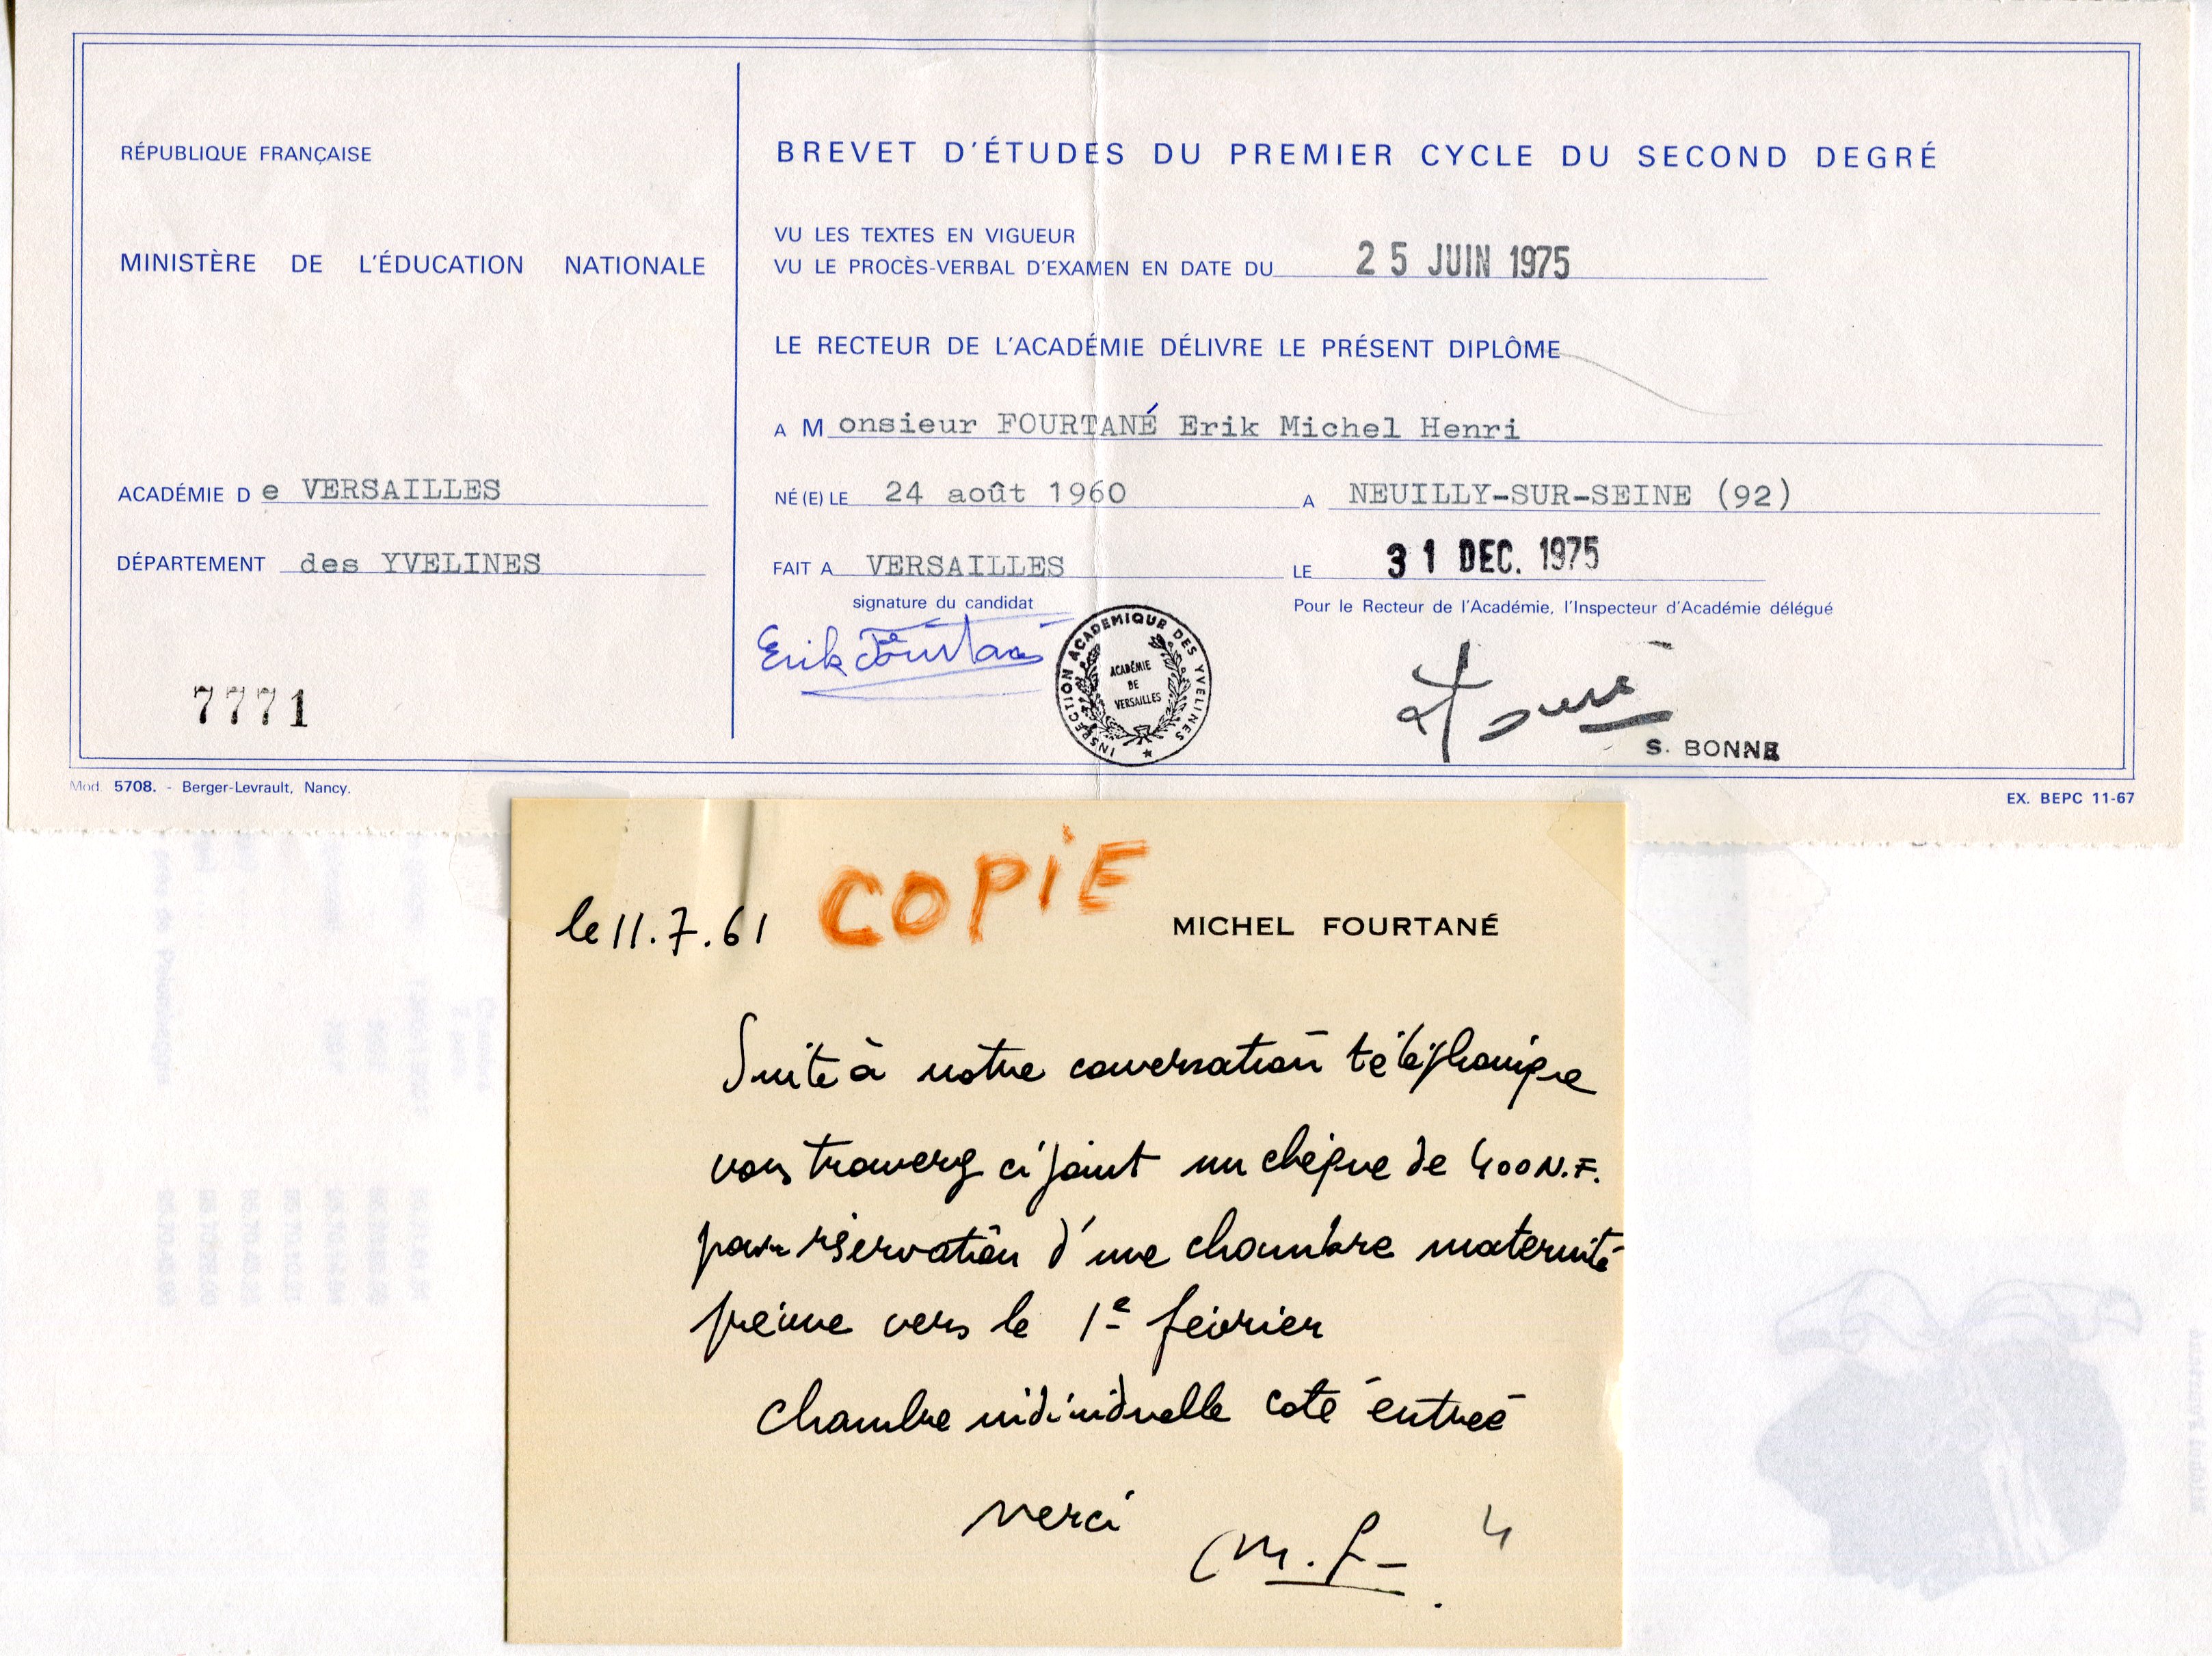 RÉPUBLIQUE FRANÇAISE
MINISTÈRE DE L'ÉDUCATION NATIONALE
ACADÉMIE De VERSAILLES
DÉPARTEMENT des YVELINES
7771
BREVET D'ÉTUDES DU PREMIER CYCLE DU SECOND DEGRÉ
VU LES TEXTES EN VIGUEUR
VU LE PROCÈS-VERBAL D'EXAMEN EN DATE DU 25 JUIN 1975
LE RECTEUR DE L'ACADÉMIE DÉLIVRE LE PRÉSENT DIPLÔME
A Monsieur FOURTANÉ Erik Michel Henri
NÉ(E) LE 24 août 1960 A NEUILLY-SUR-SEINE (92)
FAIT A VERSAILLES LE 31 DEC. 1975
signature du candidat
Pour le Recteur de l'Académie, l'Inspecteur d'Académie délégué
Erik Fourtané
INSPECTION ACADEMIQUE DES YVELINES
ACADÉMIE
DE
VERSAILLES
S. BONNE
Mod 5708. - Berger-Levrault, Nancy.
EX. BEPC 11-67
COPiE
le 11.7.61
MICHEL FOURTANÉ
Suite à notre conversation téléphonique
vous trouverez ci joint un chèque de 400 N.F.
pour réservation d'une chambre maternité
prévue vers le 1e février
chambre individuelle coté entrée
merci
M.F.
4